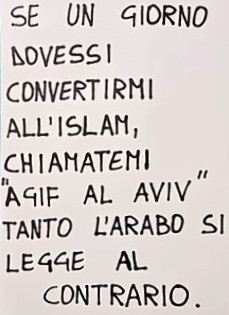 SE UN GIORNO
DOVESSI
CONVERTIRMI
ALL'ISLAM,
CHIAMATEMI
"AGIF AL AVIV"
TANTO L'ARABO SI
LEGGE AL
CONTRARIO.